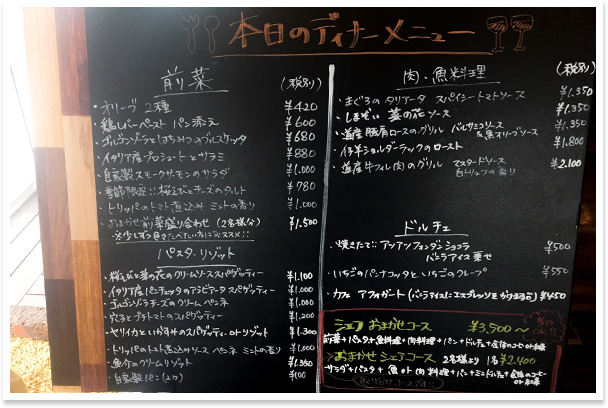 本日のディナーメニュー
前菜 (税別)
・オリーブ2種 ¥420
・鶏レバーペースト パン添え ¥600
・ゴルゴンゾラとはちみつのブルスケッタ ¥680
・イタリア産プロシュートとサラミ ¥880
・自家製スモークサーモンのサラダ ¥1.000
・季節限定!!桜えびとチーズのタルト ¥780
・トリッパのトマト煮込み ミントの香り ¥1.000
・おまかせ前菜盛り合わせ (2名様分) ¥1.500
パスタ・リゾット
・桜えびと菜の花のクリームソーススパゲッティー ¥1.100
・イタリア産パンチェッタのアラビアータ スパゲッティー ¥1.000
・ゴルゴンゾラチーズのクリーム ペンネ ¥1.000
¥1.200
・ヤリイカといかすみのスパゲッティ or リゾット ¥1.300
・トリッパのトマト煮込みソース ペンネ ミントの香り ¥1.000
・魚介のクリームリゾット ¥1.350
・自家製パン ¥100
肉・魚料理 (税別)
・まぐろのタリアータ スパイシートマトソース ¥1.350
菜の花ソース ¥1.350
・道産豚肩ロースのグリル バルサミコソース &黒オリーブソース ¥1.350
・仔羊ショルダーラックのロースト ¥1.800
・道産牛フィレ肉のグリル マスタードソース 白トリュフの香り ¥2.100
ドルチェ
・焼きたて!!フォンダンショコラ バニラアイス乗せ ¥500
・いちごのパンナコッタといちごのクレープ ¥550
・カフェ アフォガート (バニラアイスにエスプレッソをかけます) ¥450
シェフおまかせコース ¥3,500〜
前菜+パスタ+魚料理+肉料理+パン+ドルチェ+食後のコーヒーor紅茶
おまかせ シェアコース 2名様より 1名¥2.400
サラダ+パスタ+魚or肉料理+パン+ミニドルチェ+食後のコーヒーor紅茶